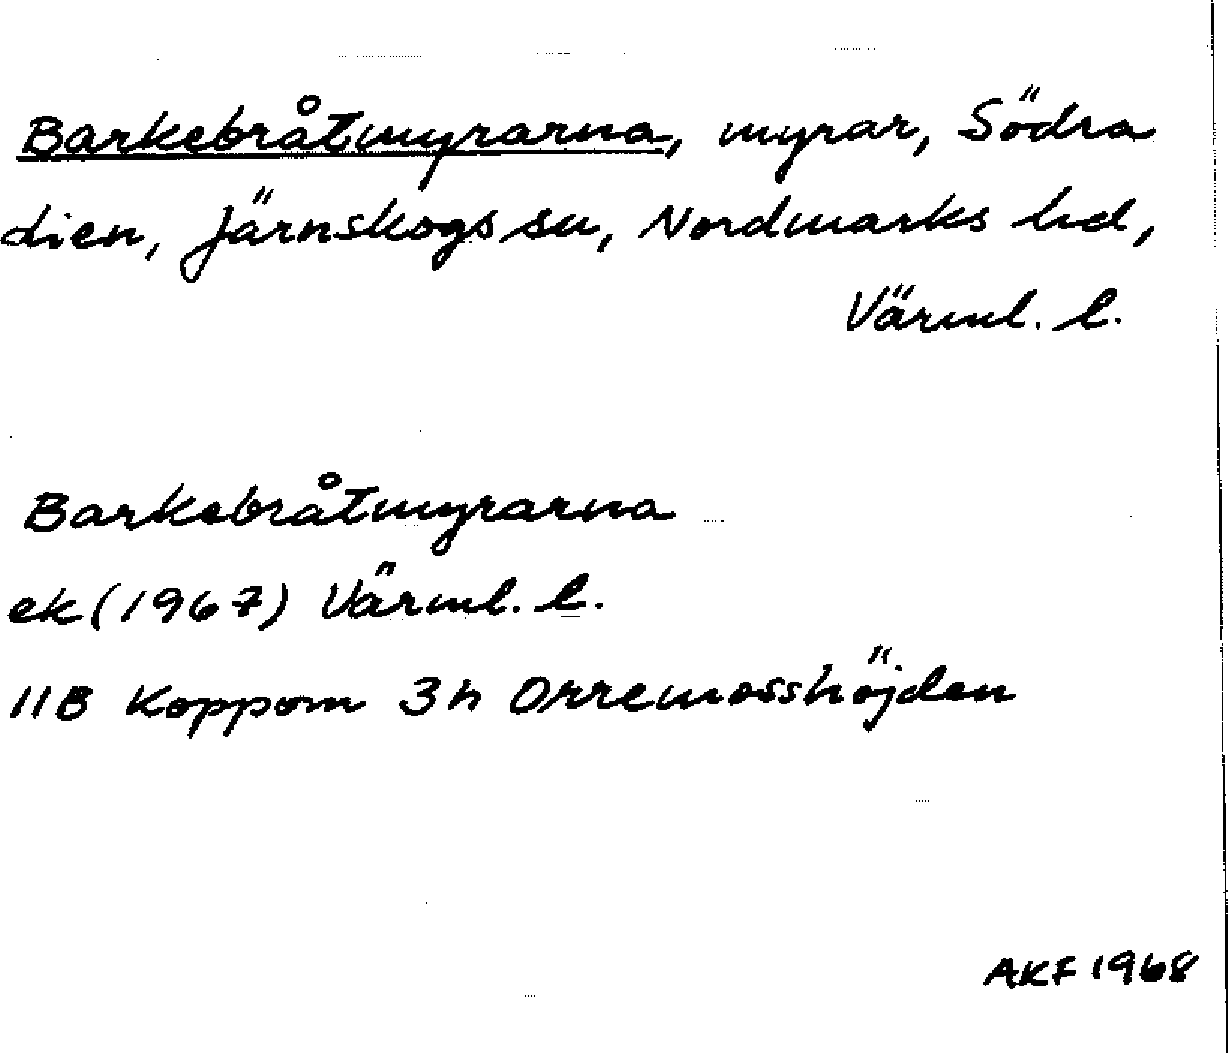 Barkebråtmyrarna, myrar, Södra
Lien, Järnskogs sn, Nordmarks hd,
Värml. l.
Barkebråtmyrarna
ek (1967) Värml. l.
11B Koppom 3h Orremosshöjden
AKF 1968